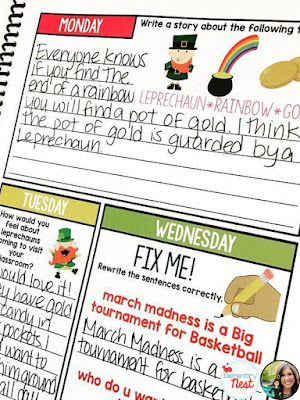 MONDAY
Write a story about the following
Everyone knows
if you find the
end of a rainbow
LEPRECHAUN★RAINBOW★GO
you will find a pot of gold. I think
the pot of gold is guarded by a
Leprechaun.
TUESDAY
How would you
feel about
leprechauns
coming to visit
your
classroom?
love it!
have gold
candy in
pockets. I
want to
him ground
all day!
WEDNESDAY
FIX ME!
Rewrite the sentences correctly.
march madness is a Big
tournament for Basketball
March Madness is a
tournament for
who do u
Elementary
Nest